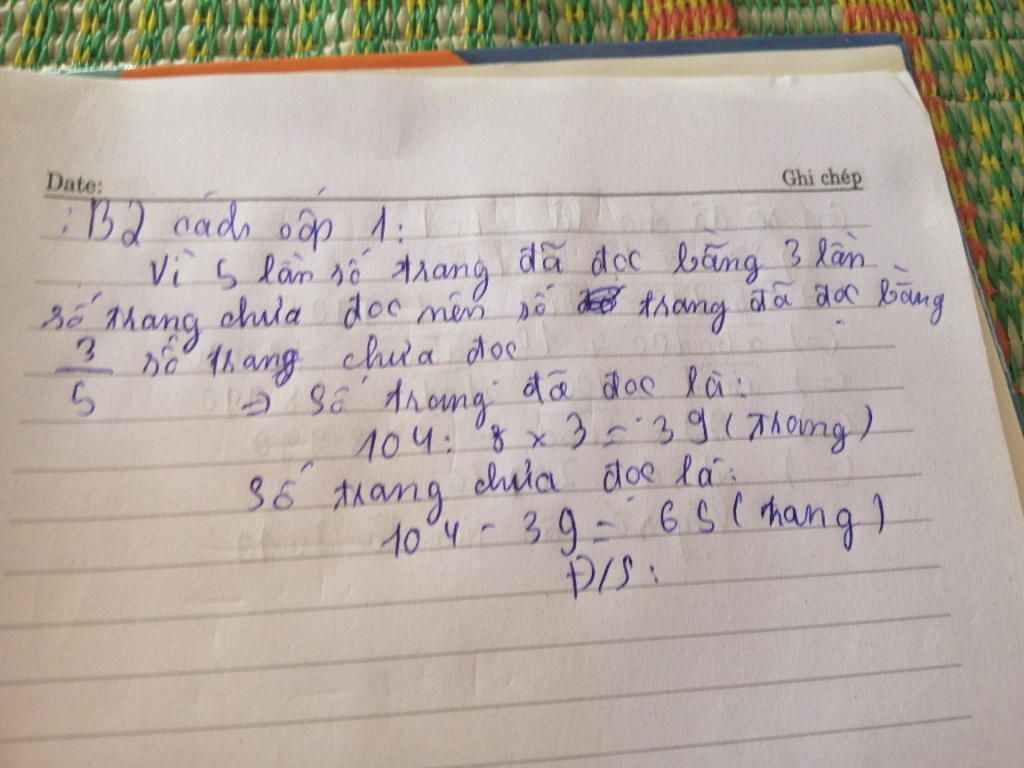 Date: Ghi chép
: B2 cách cấp 1:
Vì 5 lần số trang đã đọc bằng 3 lần
số trang chưa đọc nên số trang đã đọc bằng
3/5 số trang chưa đọc
=> Số trang đã đọc là:
104 : 8 x 3 = 39 (trang)
Số trang chưa đọc là:
104 - 39 = 65 (trang)
Đ/S :